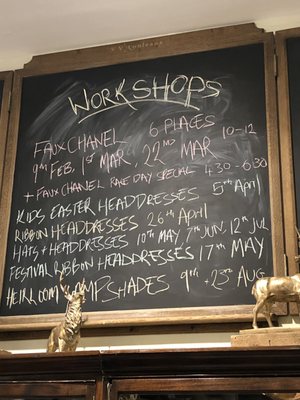 WORKSHOPS
FAUX CHANEL 6 PLACES
9TH FEB, 1ST MAR, 22ND MAR 10-12
+ FAUX CHANEL RACE DAY SPECIAL 4.30-6.30
KIDS EASTER HEADDRESSES 5th April
RIBBON HEADDRESSES 26th April
HATS + HEADDRESSES 10TH MAY, 7TH JUN, 12TH JUL
FESTIVAL RIBBON HEADDRESSES 17TH MAY
HEIRLOOM LAMPSHADES 9TH + 23RD AUG